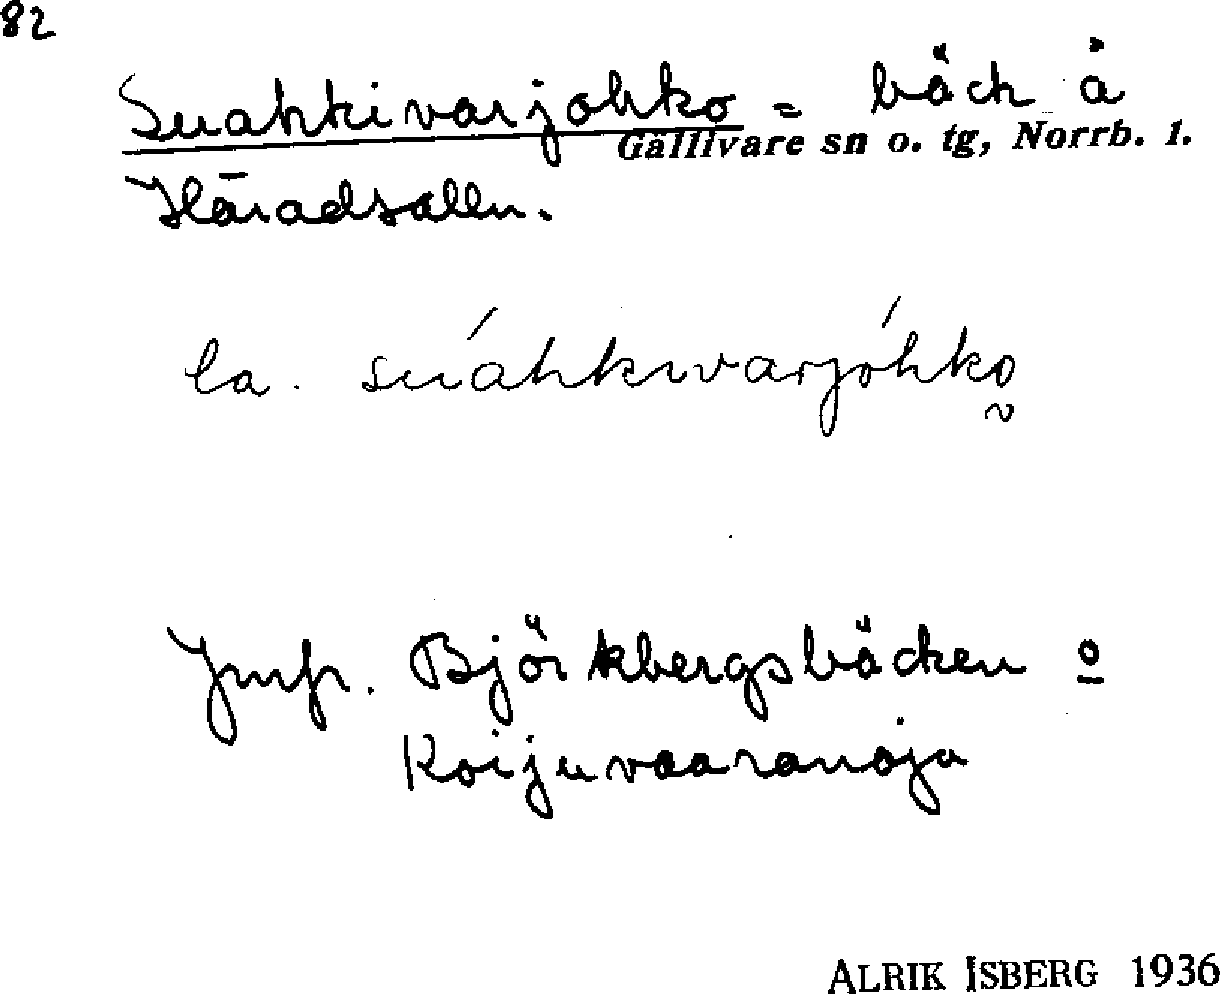 82
Suahkivarjohko = bäck å
Gällivare sn o. tg, Norrb. l.
Häradsallm.
la. suáhkivarjóhko
Jmfr. Björkbergsbäcken o
Koijuvaaranoja
ALRIK ISBERG 1936